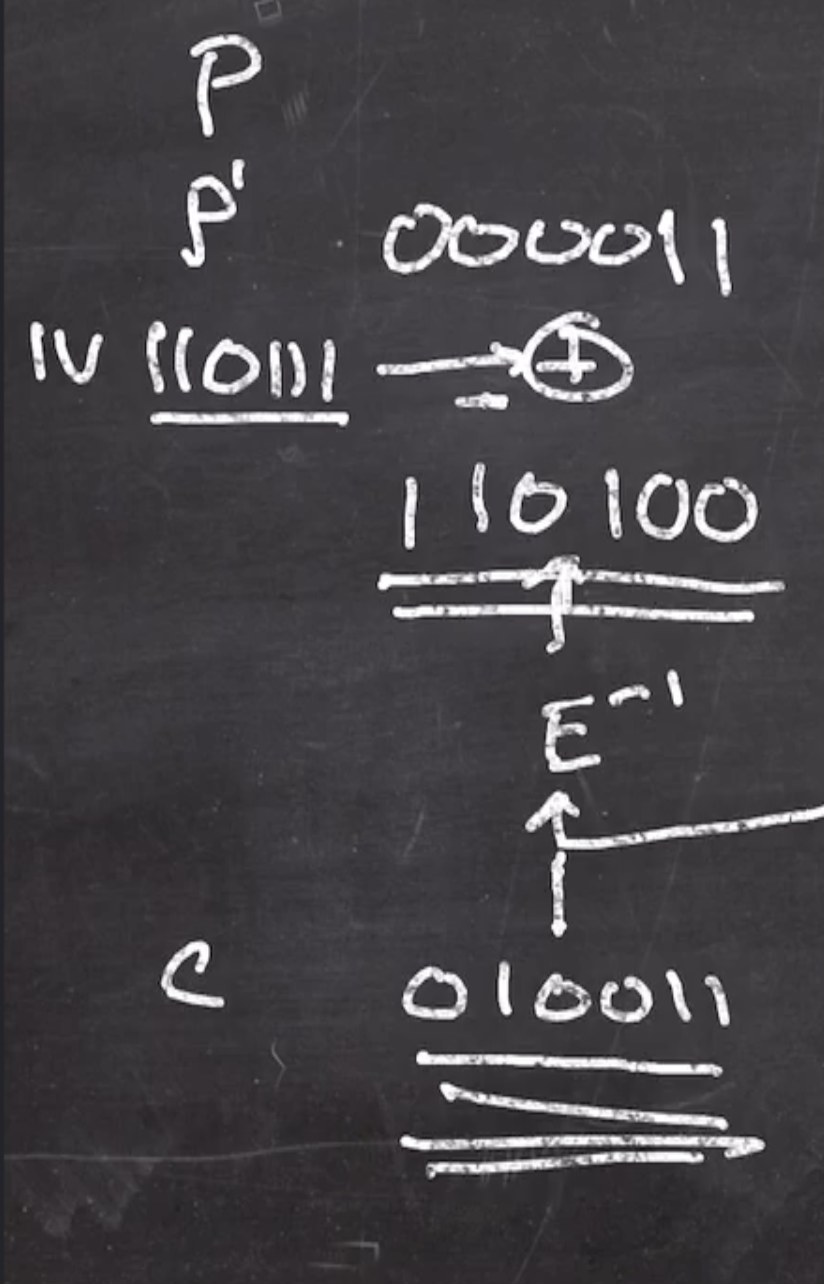 P
P' 000011
IV 110111 → ⊕
110100
E⁻¹
C 010011